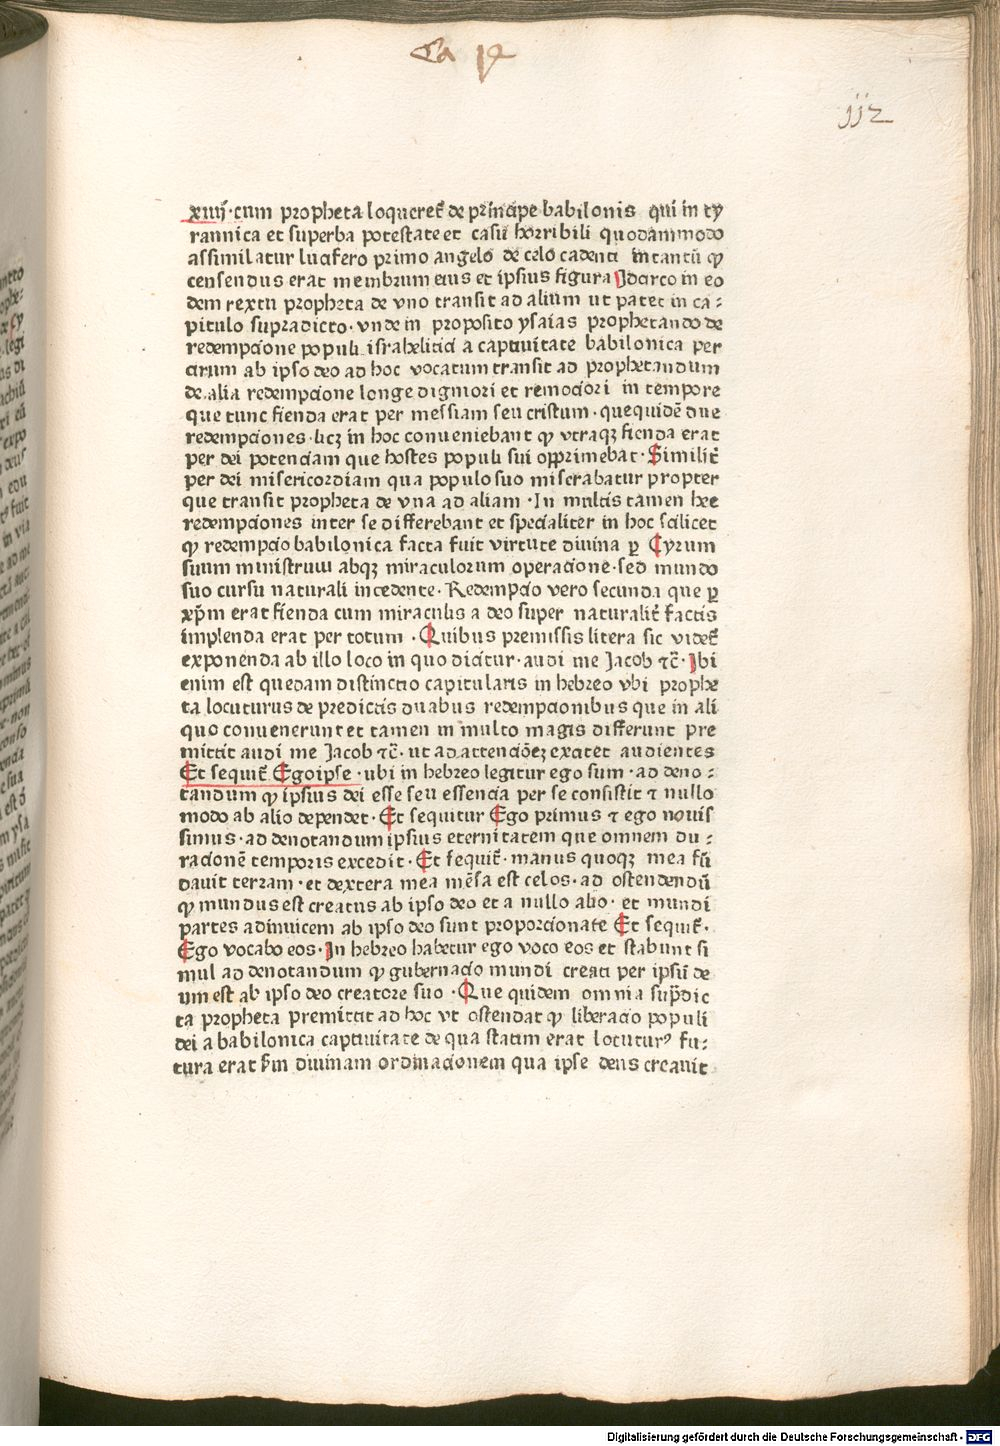 Ca
112
xiiij· cum propheta loqueret̃ de principe babilonis qui in ty
rannica et superba potestate et casu horribili quodammodo
assimilatur lucifero primo angelo de celo cadenti in tantũ ꝙ
censendus erat membrum eius et ipsius figura Idarco in eo
dem textu propheta de vno transit ad alium ut patet in ca⸗
pitulo supradicto· vnde in proposito ysaias prophetando de
redempcione populi israhelitici a captiuitate babilonica per
cirum ab ipso deo ad hoc vocatum transit ad prophetandum
de alia redempcione longe digniori et remociori in tempore
que tunc fienda erat per messiam seu cristum · quequidẽ due
redempciones· licꝫ in hoc conueniebant ꝙ vtraqꝫ fienda erat
per dei potenciam que hostes populi sui opprimebat· Similit̃
per dei misericordiam qua populo suo miserabatur propter
que transit propheta de vna ad aliam ·In multis tamen hee
redempciones inter se differebant et specialiter in hoc scilicet
ꝙ redempcio babilonica facta fuit virtute diuina ꝑ Cyrum
suum ministrum absqꝫ miraculorum operacione· sed mundo
suo cursu naturali incedente· Redempcio vero secunda que ꝑ
xp̃m erat fienda cum miraculis a deo super naturalit̃ factis
implenda erat per totum · Quibus premissis litera sic videt̃
exponenda ab illo loco in quo dicitur· audi me Jacob ⁊c̃· Ibi
enim est quedam distinctio capitularis in hebreo vbi prophe
ta locuturus de predictis duabus redempcionibus que in ali
quo conuenerunt et tamen in multo magis differunt pre
mittit audi me Jacob ⁊c̃· ut ad attenciõeꝫ excitet audientes
Et sequit̃ Ego ipse · ubi in hebreo legitur ego sum · ad deno⸗
tandum ꝙ ipsius dei esse seu essencia per se consistit ⁊ nullo
modo ab alio dependet· Et sequitur Ego primus ⁊ ego nouis
simus · ad denotandum ipsius eternitatem que omnem du⸗
racionẽ temporis excedit · Et sequit̃· manus quoqꝫ mea fũ
dauit terram · et dextera mea mẽsa est celos· ad ostendendũ
ꝙ mundus est creatus ab ipso deo et a nullo alio· et mundi
partes adinuicem ab ipso deo sunt proporcionate Et sequit̃·
Ego vocabo eos· In hebreo habetur ego voco eos et stabunt si
mul ad denotandum ꝙ gubernacio mundi creati per ipsũ de
um est ab ipso deo creatore suo · Que quidem omnia sup̃dic
ta propheta premittit ad hoc vt ostendat ꝙ liberacio populi
dei a babilonica captiuitate de qua statim erat locuturꝰ fu⸗
tura erat s̃m diuinam ordinacionem qua ipse deus creauit
Digitalisierung gefördert durch die Deutsche Forschungsgemeinschaft - DFG